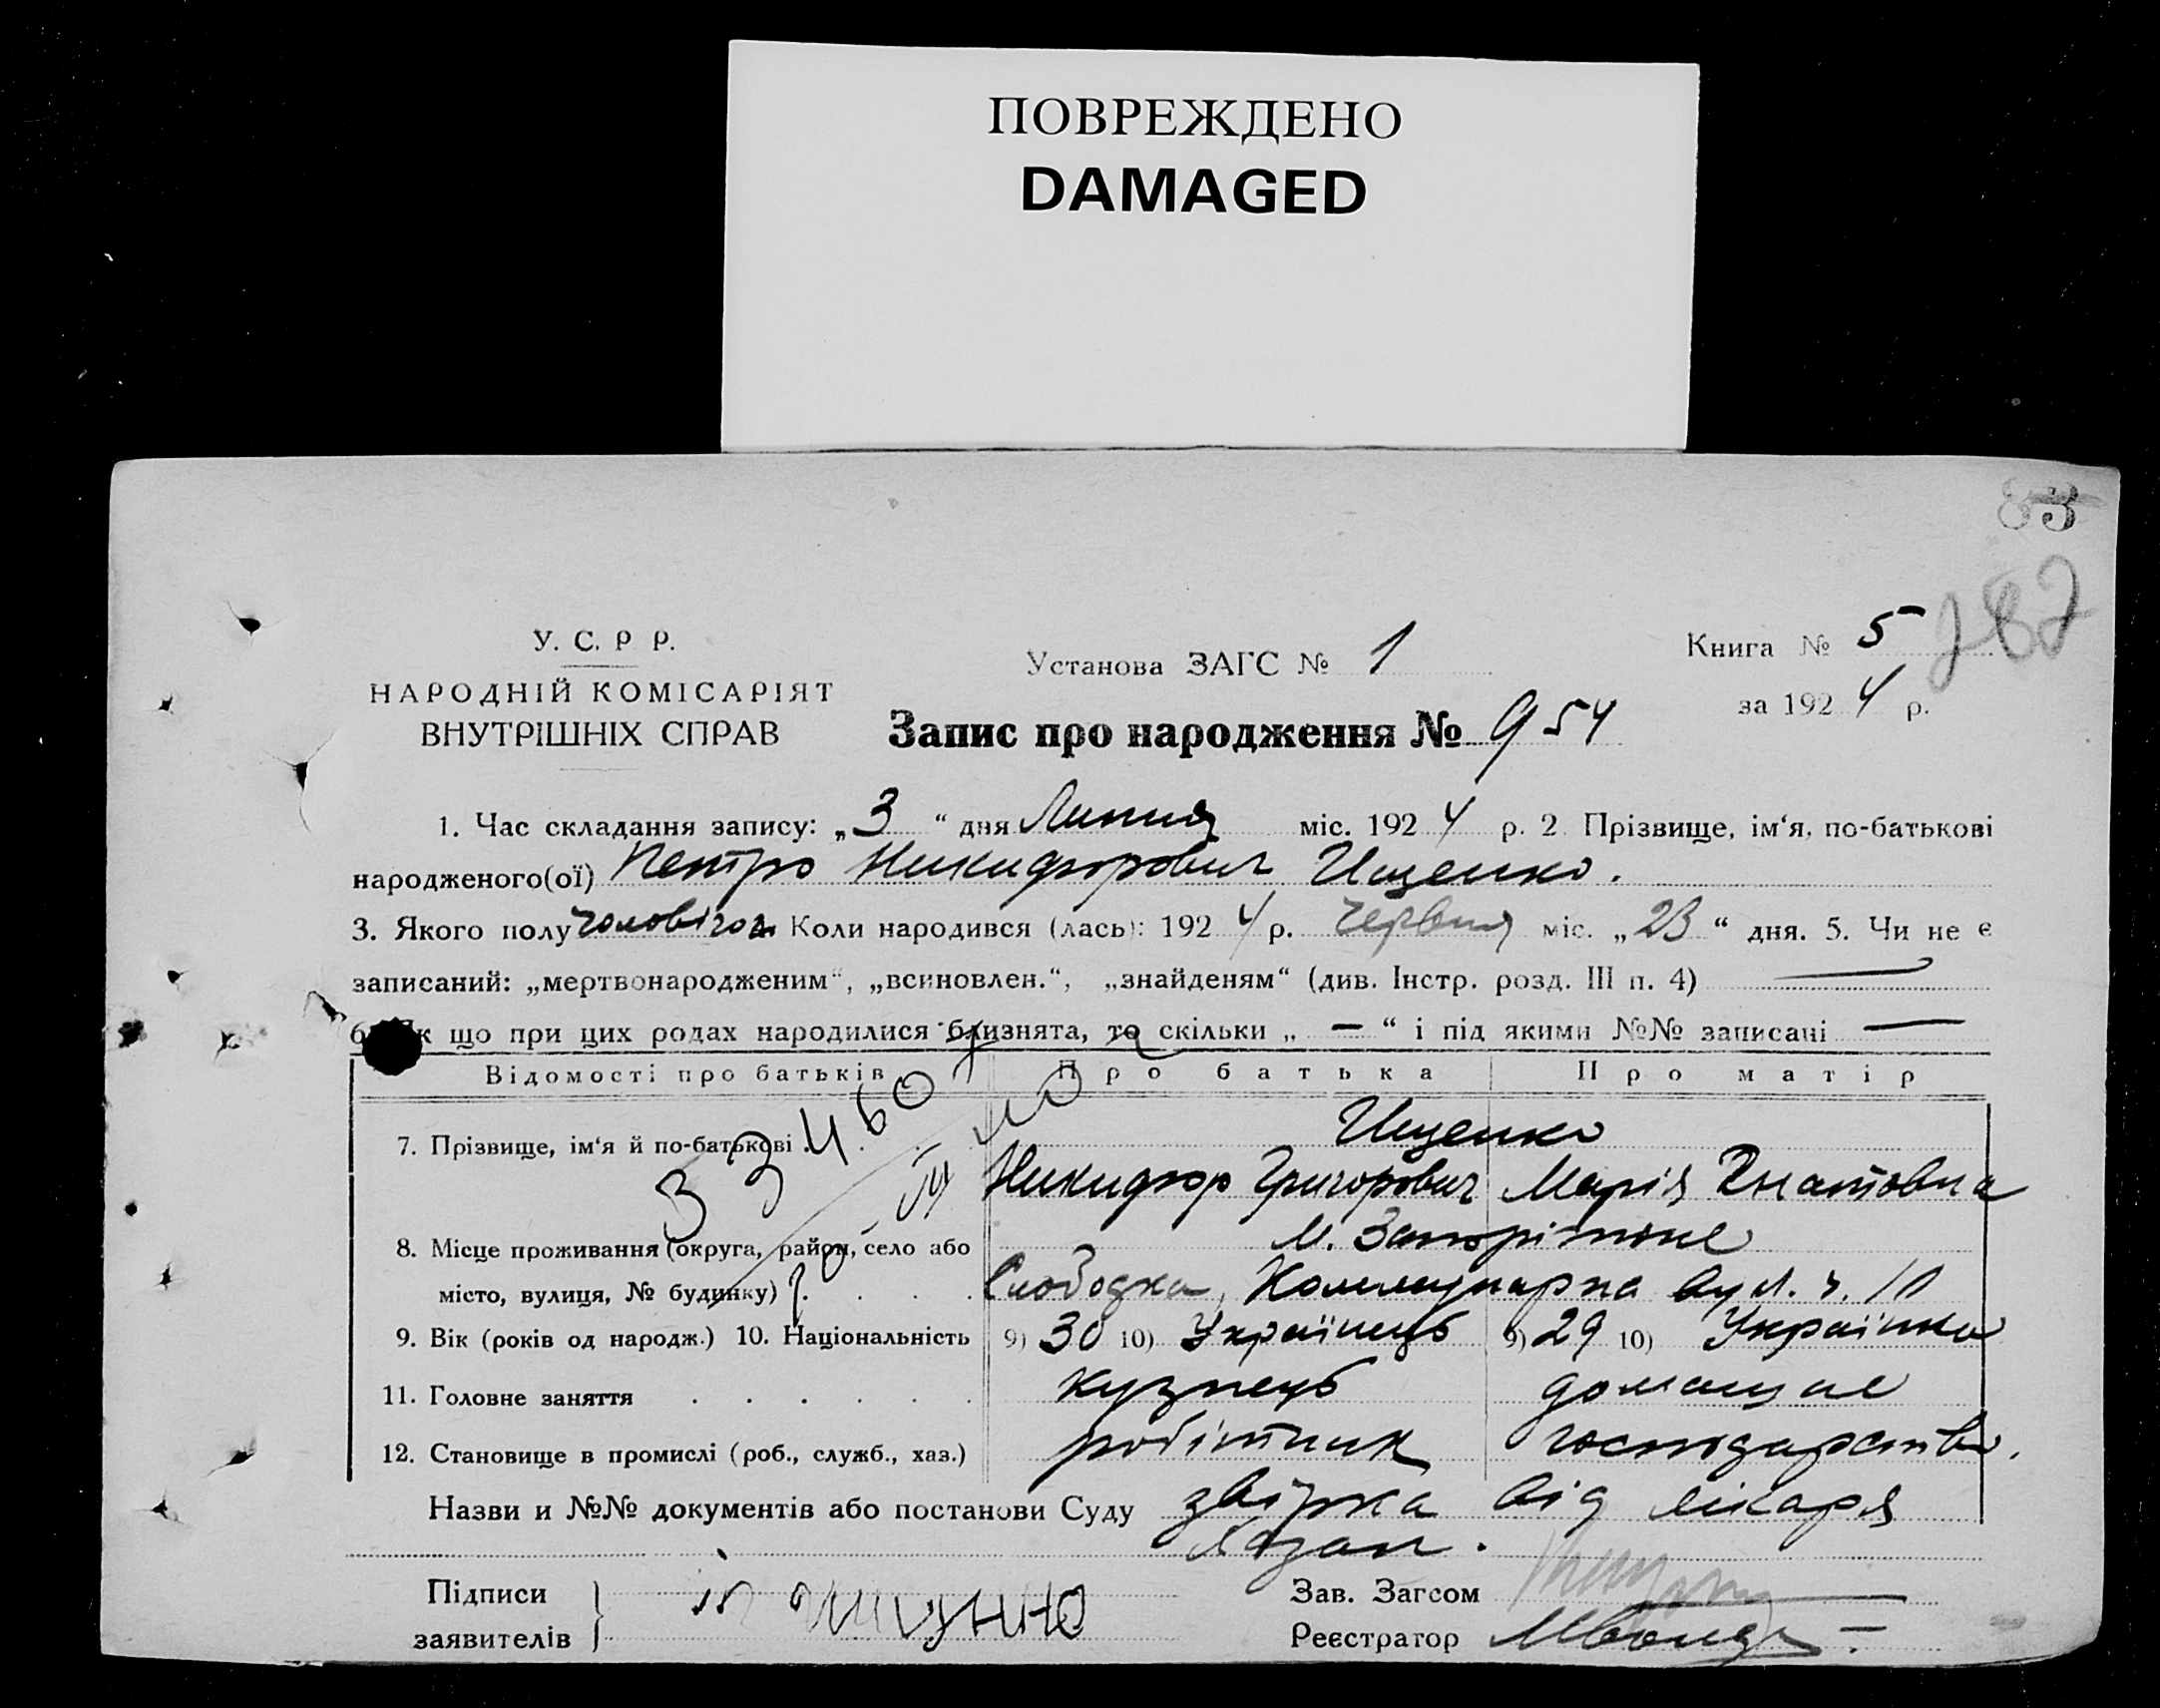 ПОВРЕЖДЕНО
DAMAGED
83
У. С. Р Р.
НАРОДНІЙ КОМІСАРІЯТ
ВНУТРІШНІХ СПРАВ
Установа ЗАГС № 1
Книга № 5
за 1924 р.
Запис про народження № 954
1. Час складання запису: „3“ дня Липня міс. 1924 р. 2 Прізвище, ім‘я, по-батькові
народженого(ої) Петро Никифорович Ищенко.
3. Якого полу чоловічог. Коли народився (лась): 1924 р. червня міс. „23“ дня. 5. Чи не є
записаний: „мертвонародженим“, „всиновлен.“, „знайденям“ (див. Інстр. розд. III п. 4) —
6. Як що при цих родах народилися близнята, то скільки „ — “ і під якими №№ записані —
Відомості про батьків Про батька Про матір
7. Прізвище, ім‘я й по-батькові Ищенко
Никифор Григорович Марія Гнатовна
33460
8. Місце проживання (округа, район, село або м. Запоріжжє
місто, вулиця, № будинку) Слободка, Коммунарна вул. ч. 10
9. Вік (років од народж.) 10. Національність 9) 30 10) Українець 9) 29 10) Українка
11. Головне заняття кузнець домашнє
12. Становище в промислі (роб., служб., хаз.) робітник господарство.
Назви и №№ документів або постанови Суду від лікаря
Підписи
заявителів
Зав. Загсом
Реєстратор